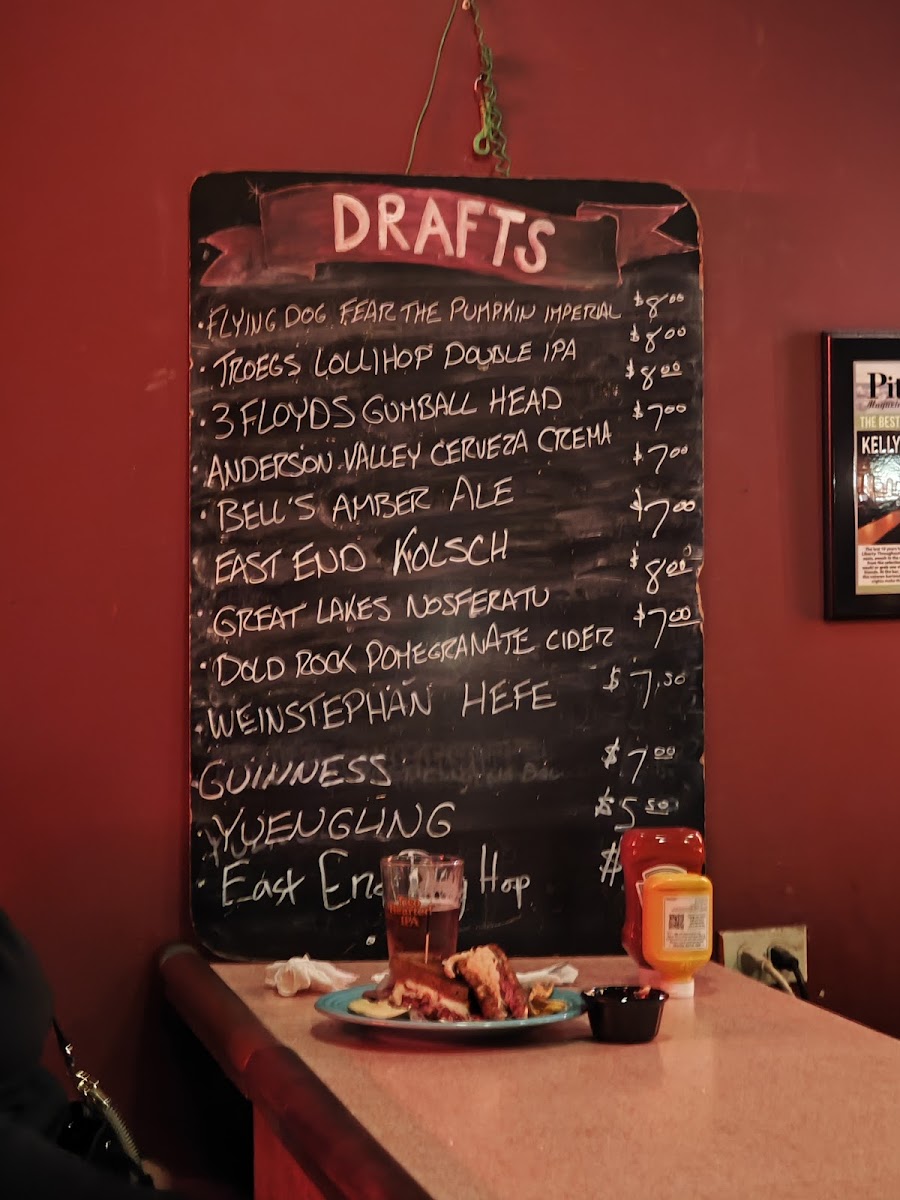 DRAFTS
· FLYING DOG FEAR THE PUMPKIN IMPERIAL $8.00
· TROEGS LOLLIHOP DOUBLE IPA $8.00
· 3 FLOYDS GUMBALL HEAD $8.00
· ANDERSON VALLEY CERVEZA CREMA $7.00
· BELL'S AMBER ALE $7.00
EAST END KOLSCH $7.00
· GREAT LAKES NOSFERATU $8.00
· BOLD ROCK POMEGRANATE CIDER $7.00
· WEINSTEPHAN HEFE $7.50
· GUINNESS $7.00
· YUENGLING $5.50
· East End Hop $
Two
Hearted
IPA
Pit
Magazine
THE BEST
KELLY